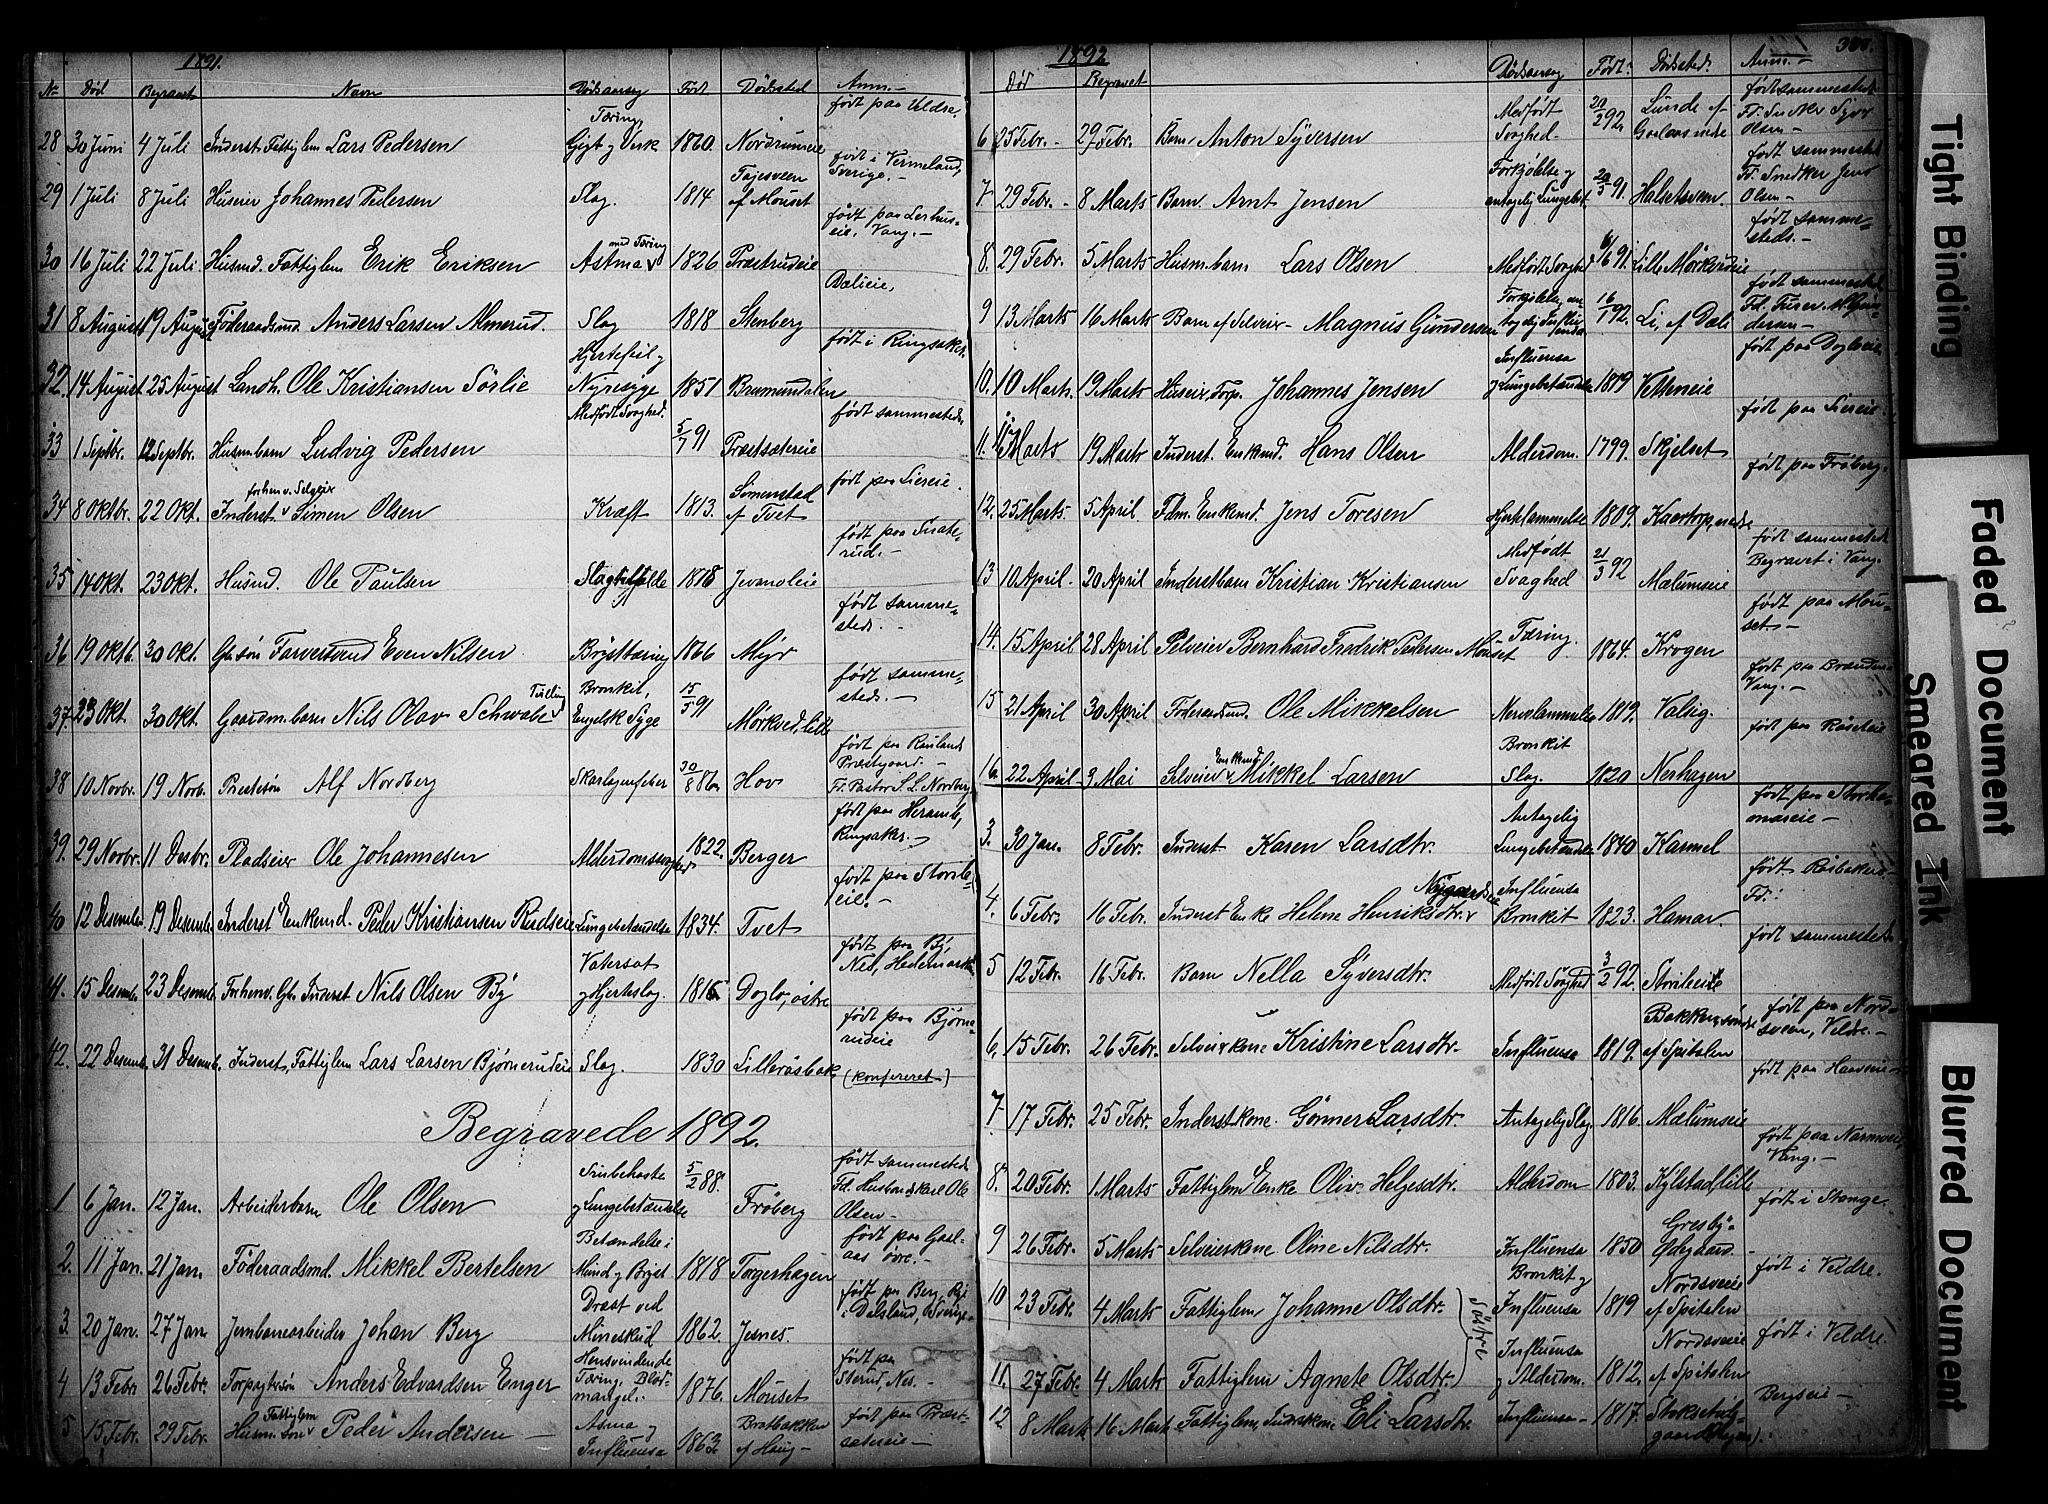 1891.
No Død Begravet Navn Dødsaarsag Født Dødssted Anm.
28 30 Juni 4 Juli Inderst. Fattiglem Lars Pedersen Tæring, Gigt og Verk 1820. Nordrumeie født paa Veldre.
29 1 Juli 8 Juli Huseier Johannes Pedersen Slag. 1814 af Mouset født i Vermeland, Sverige.-
30 16 Juli 22 Juli Husmd. Fattiglem Erik Eriksen Astma med Tæring 1826 Præstrudeie født paa Lerhuseie, Vang.-
31 8 August 19 August Føderaadsmd. Anders Larsen Almerud. Slag 1818 Stenberg Dælieie,
32. 14 August 25 August Landh. Ole Kristiansen Sørlie Hjertefeil og Nyresyge 1851 Brumunddalen født i Ringsaker.
33 1 Septbr. 12 Septbr. Husm.barn Ludvig Pedersen Medfødt Svaghed. 5/7 91 Præstsætereie født sammesteds
34 8 Oktbr. 22 Okt. Inderst. forhenv. Selveier Simen Olsen Kræft 1813. af Tvet født paa Liereie.
35 14 Okt. 23 Okt. Husmd. Ole Paulsen Slagtilfælde 1818 født paa
36 19 Oktb. 30 Okt. Gbr.søn Farversvend Even Nilsen Brysttæring 1866 Myr født sammesteds.-
37. 23 Okt. 30 Okt. Gaardm.barn Nils Olav Schwabe Tvilling Bronkit, Engelsk Syge 15/5 91 Mørkved, lille født sammesteds.-
38 10 Novbr. 19 Novb. Prestesøn Alf Nordberg Skarlagensfeber 30/8 86. Hov født paa Raulands Præstgaard.- F. Pastor S. L. Nordberg
39. 29 Novbr. 11 Desbr. Pladseier Ole Johannesen Alderdomssvaghed 1822. Berger født paa Heramb, Ringsaker.-
40 12 Desember 19 Desemb. Inderst Enkemd. Peder Kristiansen Rudseie Lungebetændelse 1834. Tvet født paa
41. 15 Desemb. 23 Desemb. Forhenv. Gbr. Inderst Nils Olsen By Vatersot og Hjerteslag. 1815 Doglo, østre født paa By, Nes, Hedemarken
42. 22 Desemb. 31 Desemb. Inderst, Fattiglem Lars Larsen Bjørnerudeie Slag. 1830 Lilleråsbak født paa Bjørnerudeie (konfereret)
Begravede 1892.
1 6 Jan. 12 Jan. Arbeiderbarn Ole Olsen og Lungebetændelse 5/2 88. Frøberg født sammesteds Ole Olsen-
2. 11 Jan. 21 Jan. Føderaadsmd. Mikkel Bertelsen Betændelse i Mund og Bryst 1818 Torgerhagen født paa Gaalaas øvre.-
3. 20 Jan. 27 Jan. Jernbanearbeider Johan Berg Dræbt ved Mineskud 1862. Jesnes. født paa Berg, i Dalsland, Sverige-
4 13 Febr. 26 Febr. Forpagtersøn Anders Edvardsen Enger Hensvindende Tæring, Blodmangel. 1876. Mouset født paa Nes.-
5 15 Febr. 29 Febr. Husm.søn Fattiglem Peder Andersen - Asma og Influensa 1863. Bratbakken af Haug- født paa Præstsætereie-
1892 300.
Død Begravet Dødsaarsag Født Dødssted. Anm.-
6 25 Febr. - 29 Febr. Barn Anton Syversen Medfødt Svaghed- 20/2 92. Lunde af Gaalaas nedre født sammesteds Olsen-
7 29 Febr. - 8 Marts Barn. Arnt Jensen Forkjølelse og antagelig Lungebet. 20/5 91. født sammesteds F. Snedker Jens Olsen-
8. 29 Febr. 5 Marts Husm.barn Lars Olsen Medfødt Svaghed 6/6 91. Lille Mørkvedeie født sammesteds.-
9 13 Marts 16 Marts Barn af Selveier- Magnus Gundersen Forkjølelse, antagelig Influensa 16/1 92. Li, af Dæli født sammesteds Gundersen-
10. 10 Marts. 19 Marts Huseier, Forp. Johannes Jensen Influensa og Lungebetændelse 1819 Vettneie født paa Dogloeie
11. Marts 19 Marts Inderst. Enkemd. Hans Olsen Alderdom. 1799. Skjelset født paa Liereie.
12. 25 Marts. 5 April. Fdm. Enkemd. Jens Toresen Hjertelammelse 1809. Kaatorp, nedre født paa Frøberg.
13 10 April- 20 April Inderstbarn Kristian Kristiansen Medfødt Svaghed 21/3 92 Mælumseie født sammesteds Begravet i Vang.
14. 15 April 28 April Selveier Bernhard Fredrik Pedersen Mouset Tæring. 1864. Krogen født paa Mouset-
15 21 April 30 April Føderaadsmd. Ole Mikkelsen Nervelammelse 1819. født paa Vang.-
16. 22 April- 3 Mai Selveier Enkemd. Mikkel Larsen Bronkit Slag. 1820 Nerhagen født paa
3. 30 Jan. 8 Febr. Inderst. Karen Larsdtr. Antagelig Lungebetændelse 1840 Kammel født paa
4. 6 Febr. 16 Febr. Inderst Enke Helene Henriksdtr. Nygaardseie Influensa Bronkit 1823. Hamar. født
5 12 Febr. 16 Febr. Barn Nella Syversdtr. Medfødt Svaghed 3/2 92. født sammesteds
6, 15 Febr. 26 Febr. Selveierkone Kristine Larsdtr- Influensa 1819. Bakken, søndre af Spitalen født paa Nordsveen, Veldre.-
7- 17 Febr. 25 Febr. Inderstkone. Gønner Larsdtr. Antagelig Slag. 1816. Mælumseie født paa
8. 20 Febr. 1 Marts Fattiglem Enke Oliv Helgesdtr. Alderdom 1803. Kylstad, lille født paa Vang.-
9 26 Febr. 5 Marts Selveierkone Oline Nilsdtr. Influensa 1850 Gresby-Ødegaard- født i Stange.
10 23 Febr. 4 Marts Fattiglem Johanne Olsdtr. Søstre Bronkit og Influensa 1819 Nordsveeie af Spitalen født i Veldre.
11. 27 Febr. 4 Marts Fattiglem Agnete Olsdtr. Influensa og Alderdom. 1812. Nordsveeie af Spitalen født i Veldre.
12 8 Marts 16 Marts Fattiglem, Inderstkone Eli Larsdtr Influensa- 1817. Bergseie-
Tight Binding
Faded Document
Smeared Ink
Blurred Document